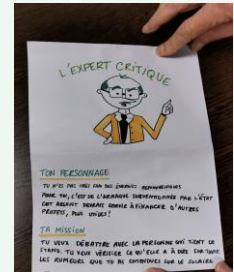 L'EXPERT CRITIQUE
TON PERSONNAGE
TU N'ES PAS TRÈS FAN DES ÉNERGIES RENOUVELABLES
POUR TOI, C'EST DE L'ARNAQUE SUBVENTIONNÉE PAR L'ÉTAT
CET ARGENT DEVRAIT SERVIR À FINANCER D'AUTRES
PROJETS, PLUS UTILES!
TA MISSION
TU VEUX DÉBATTRE AVEC LA PERSONNE QUI TIENT LE
STAND. TU VEUX VÉRIFIER CE QU'ELLE A À DIRE SUR TOUTES
LES RUMEURS QUE TU AS ENTENDUES SUR LE SOLAIRE